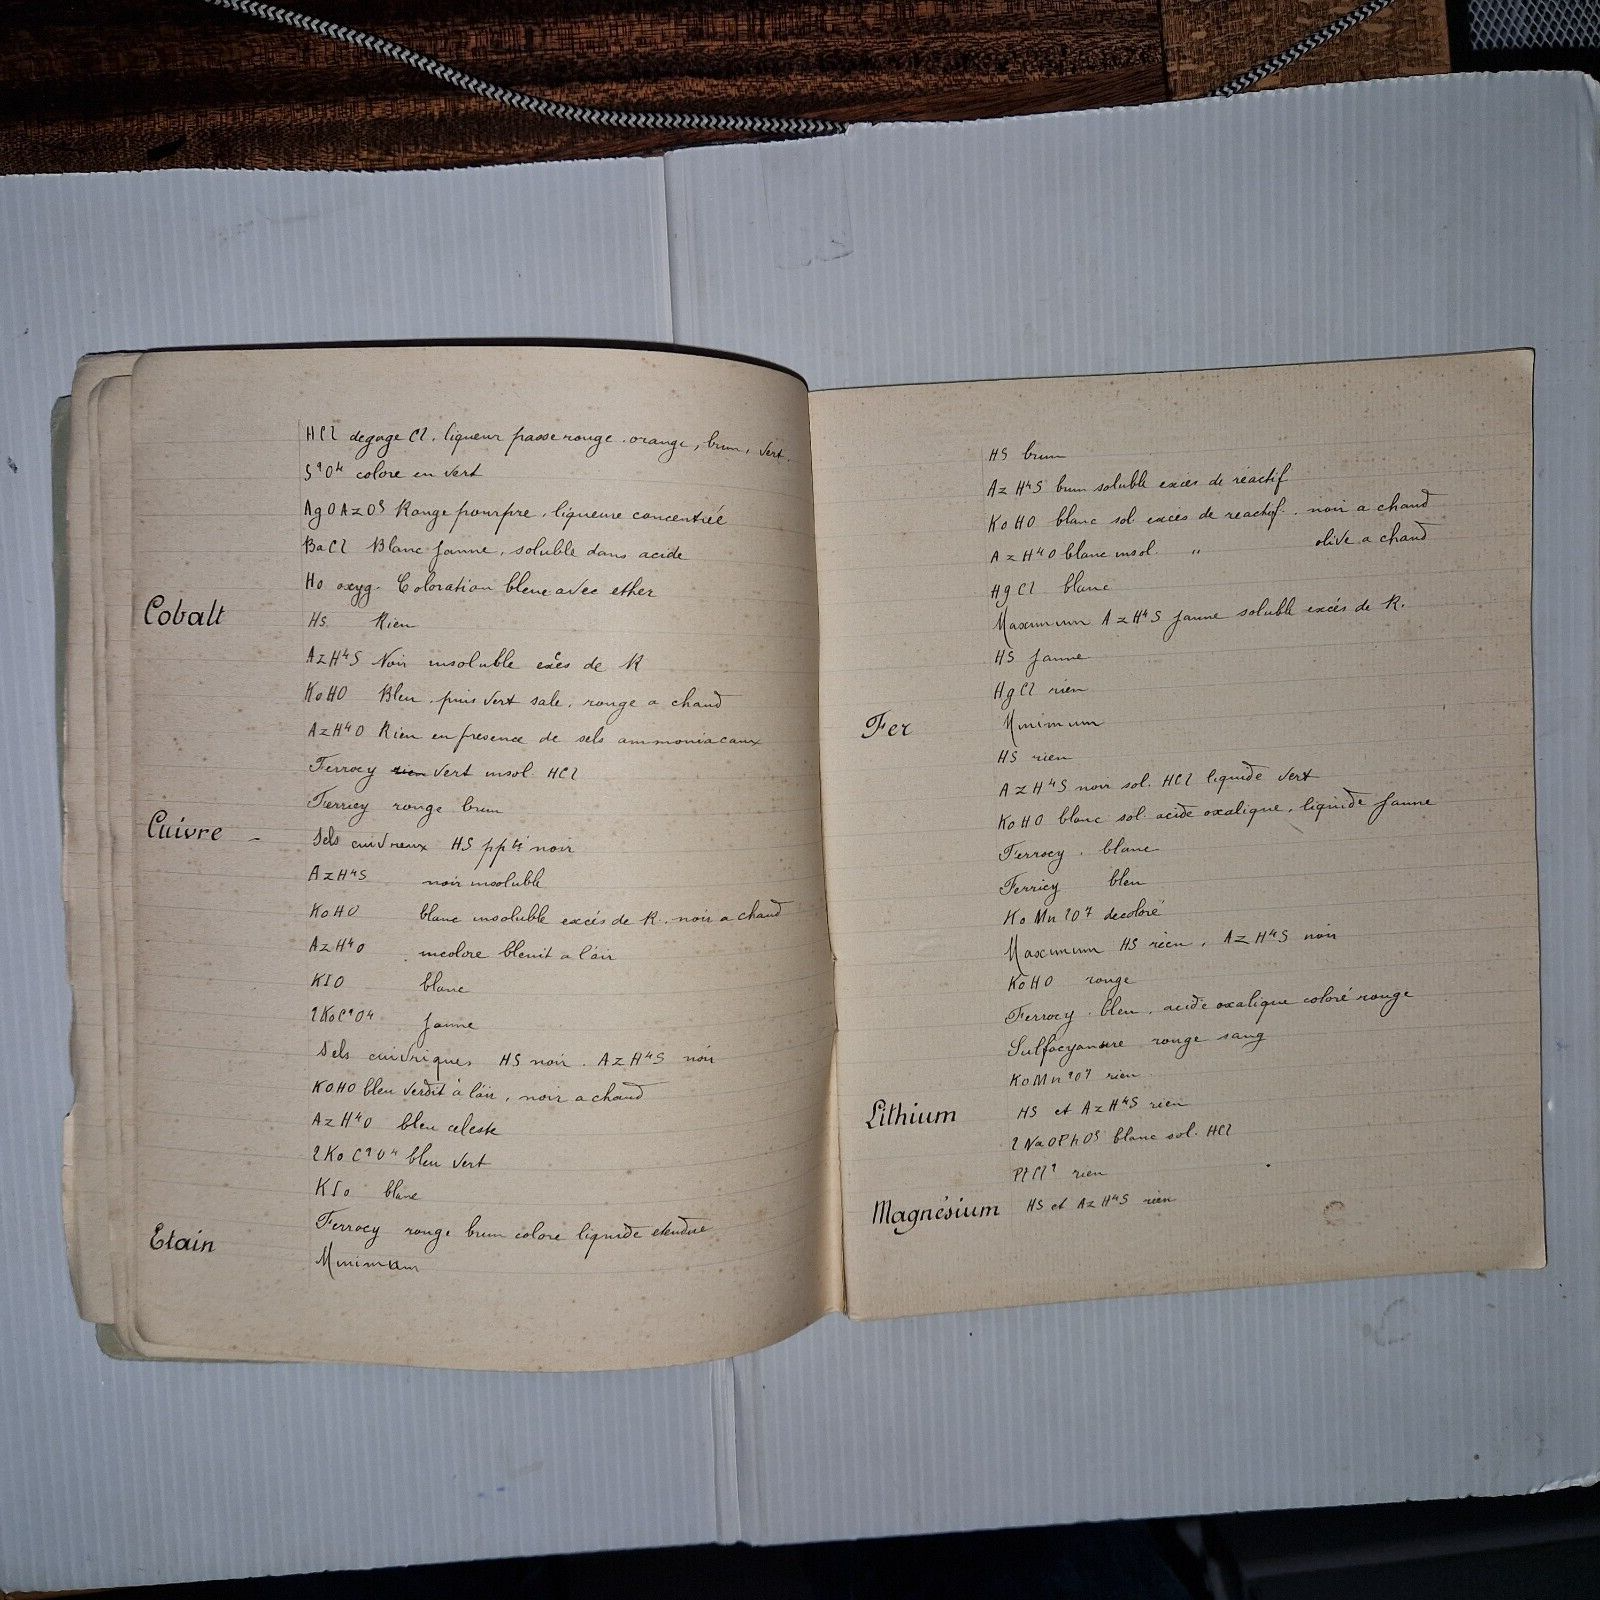 HCl degage Cl. liqueur passe rouge. orange, brun, vert.
S²O⁴ colore en vert
AgOAzO⁵ Rouge pourpre, liqueure concentréé
BaCl Blanc jaune, soluble dans acide
Ho oxyg. Coloration bleue avec ether
Cobalt HS Rien
AzH⁴S Noir insoluble excès de R
KoHO Bleu, puis vert sale, rouge a chaud
AzH⁴O Rien en presence de sels ammoniacaux
Ferrocy rien vert insol. HCl
Ferricy rouge brun
Cuivre - Sels cuivreux HS ppté noir
AzH⁴S noir insoluble
KoHO blanc insoluble excés de R. noir a chaud
AzH⁴O incolore bleuit a l'air
KIO blanc
2KoC²O⁴ jaune
Sels cuivriques HS noir. AzH⁴S noir
KOHO bleu verdit à l'air, noir a chaud
AzH⁴O bleu celeste
2KoC²O⁴ bleu vert
KIo blanc
Ferrocy rouge brun colore liquide etendue
Etain Minimum
HS brun
AzH⁴S brun soluble exces de réactif
KoHO blanc sol. excés de reactif. noir a chaud
AzH⁴O blanc insol. " olive a chaud
HgCl blanc
Maximum AzH⁴S jaune soluble excés de R.
HS jaune
HgCl rien
Fer Minimum
HS rien
AzH⁴S noir sol. HCl liquide vert
KoHO blanc sol. acide oxalique, liquide jaune
Ferrocy. blanc
Ferricy bleu
KoMn²O⁷ decoloré
Maximum HS rien, AzH⁴S noir
KoHO rouge
Ferrocy. bleu, acide oxalique coloré rouge
Sulfocyanure rouge sang
KoMn²O⁷ rien
Lithium HS et AzH⁴S rien
2NaOPhO⁵ blanc sol. HCl
PtCl² rien
Magnésium HS et AzH⁴S rien